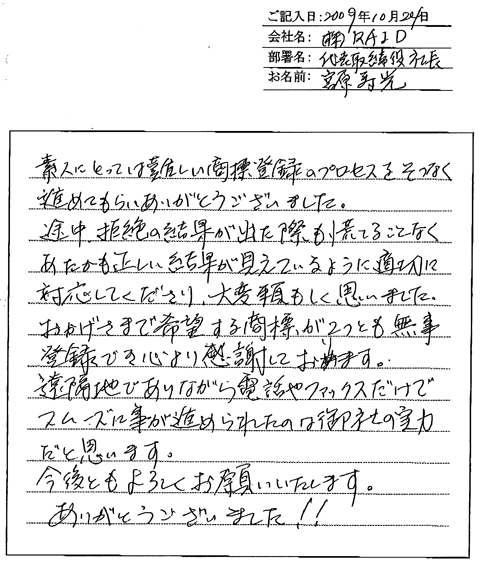 ご記入日:2009年10月20日
会社名:㈱RAID
部署名:代表取締役社長
お名前:宮原寿光
素人にとっては難しい商標登録のプロセスをそつなく
進めてもらいありがとうございました。
途中、拒絶の結果が出た際も慌てることなく
あたかも正しい結果が見えているように適切に
対応してくださり、大変頼もしく思いました。
おかげさまで希望する商標が2つとも無事
登録でき心より感謝しております。
遠隔地でありながら電話やファックスだけで
スムーズに事が進められたのは御社の実力
だと思います。
今後ともよろしくお願いいたします。
ありがとうございました!!